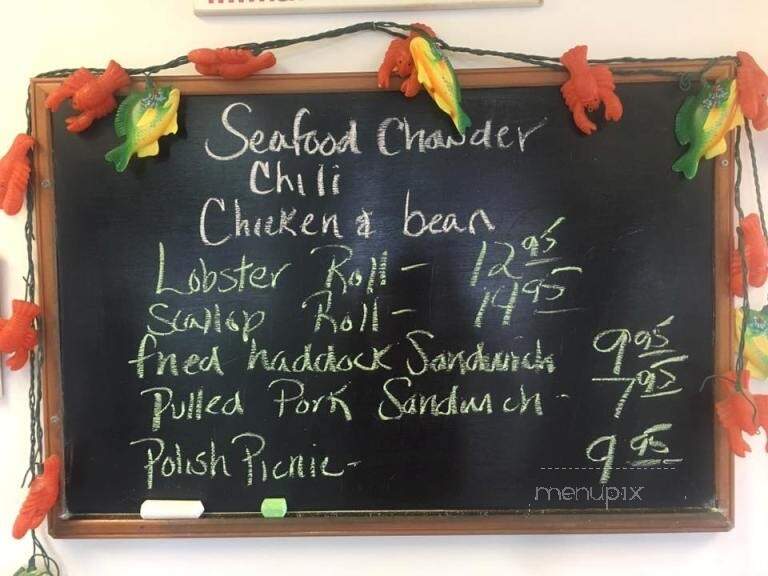 Seafood Chowder
Chili
Chicken & bean
Lobster Roll - 12.95
Scallop Roll - 14.95
fried haddock Sandwich 9.95
Pulled Pork Sandwich - 7.95
Polish Picnic - 9.95
menupix